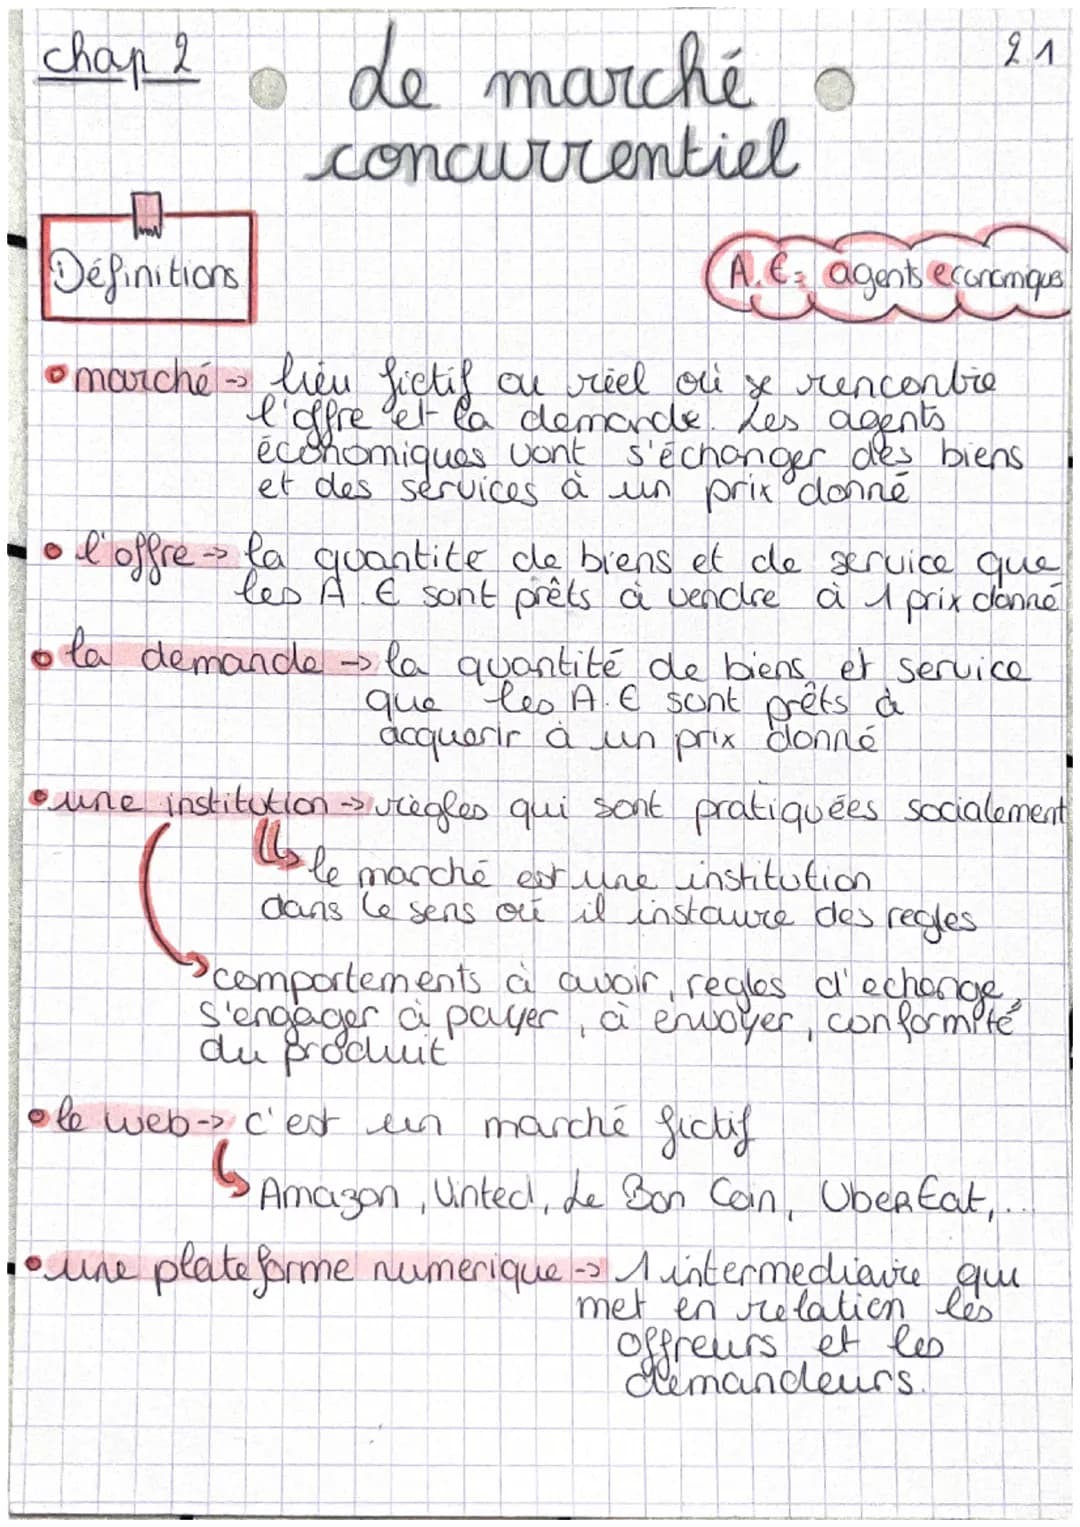 chap 2
21
de marché
concurrentiel
Définitions
A.E = agents economiques
marché -> lieu fictif ou réel où se rencontre
l'offre et la demande. Les agents
économiques vont s'échanger des biens
et des services à un prix donné
l'offre -> la quantité de biens et de service que
les A.E sont prêts à vendre à 1 prix donné
la demande -> la quantité de biens et service
que les A.E sont prêts à
acquerir à un prix donné
une institution -> règles qui sont pratiquées socialement
le marché est une institution
dans le sens où il instaure des regles
comportements à avoir, regles d'echange,
s'engager à payer, à envoyer, conformité
du produit
le web -> c'est un marché fictif
Amazon, Vinted, Le Bon Coin, UberEat,...
une plateforme numerique -> 1 intermediaire qui
met en relation les
offreurs et les
demandeurs.